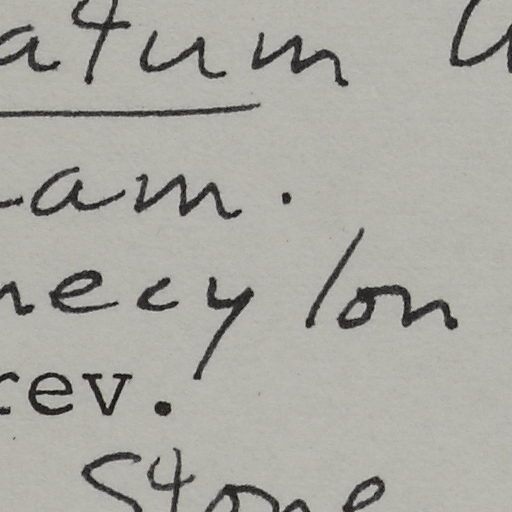 atum
Lam.
mecylon
rev.
Stone